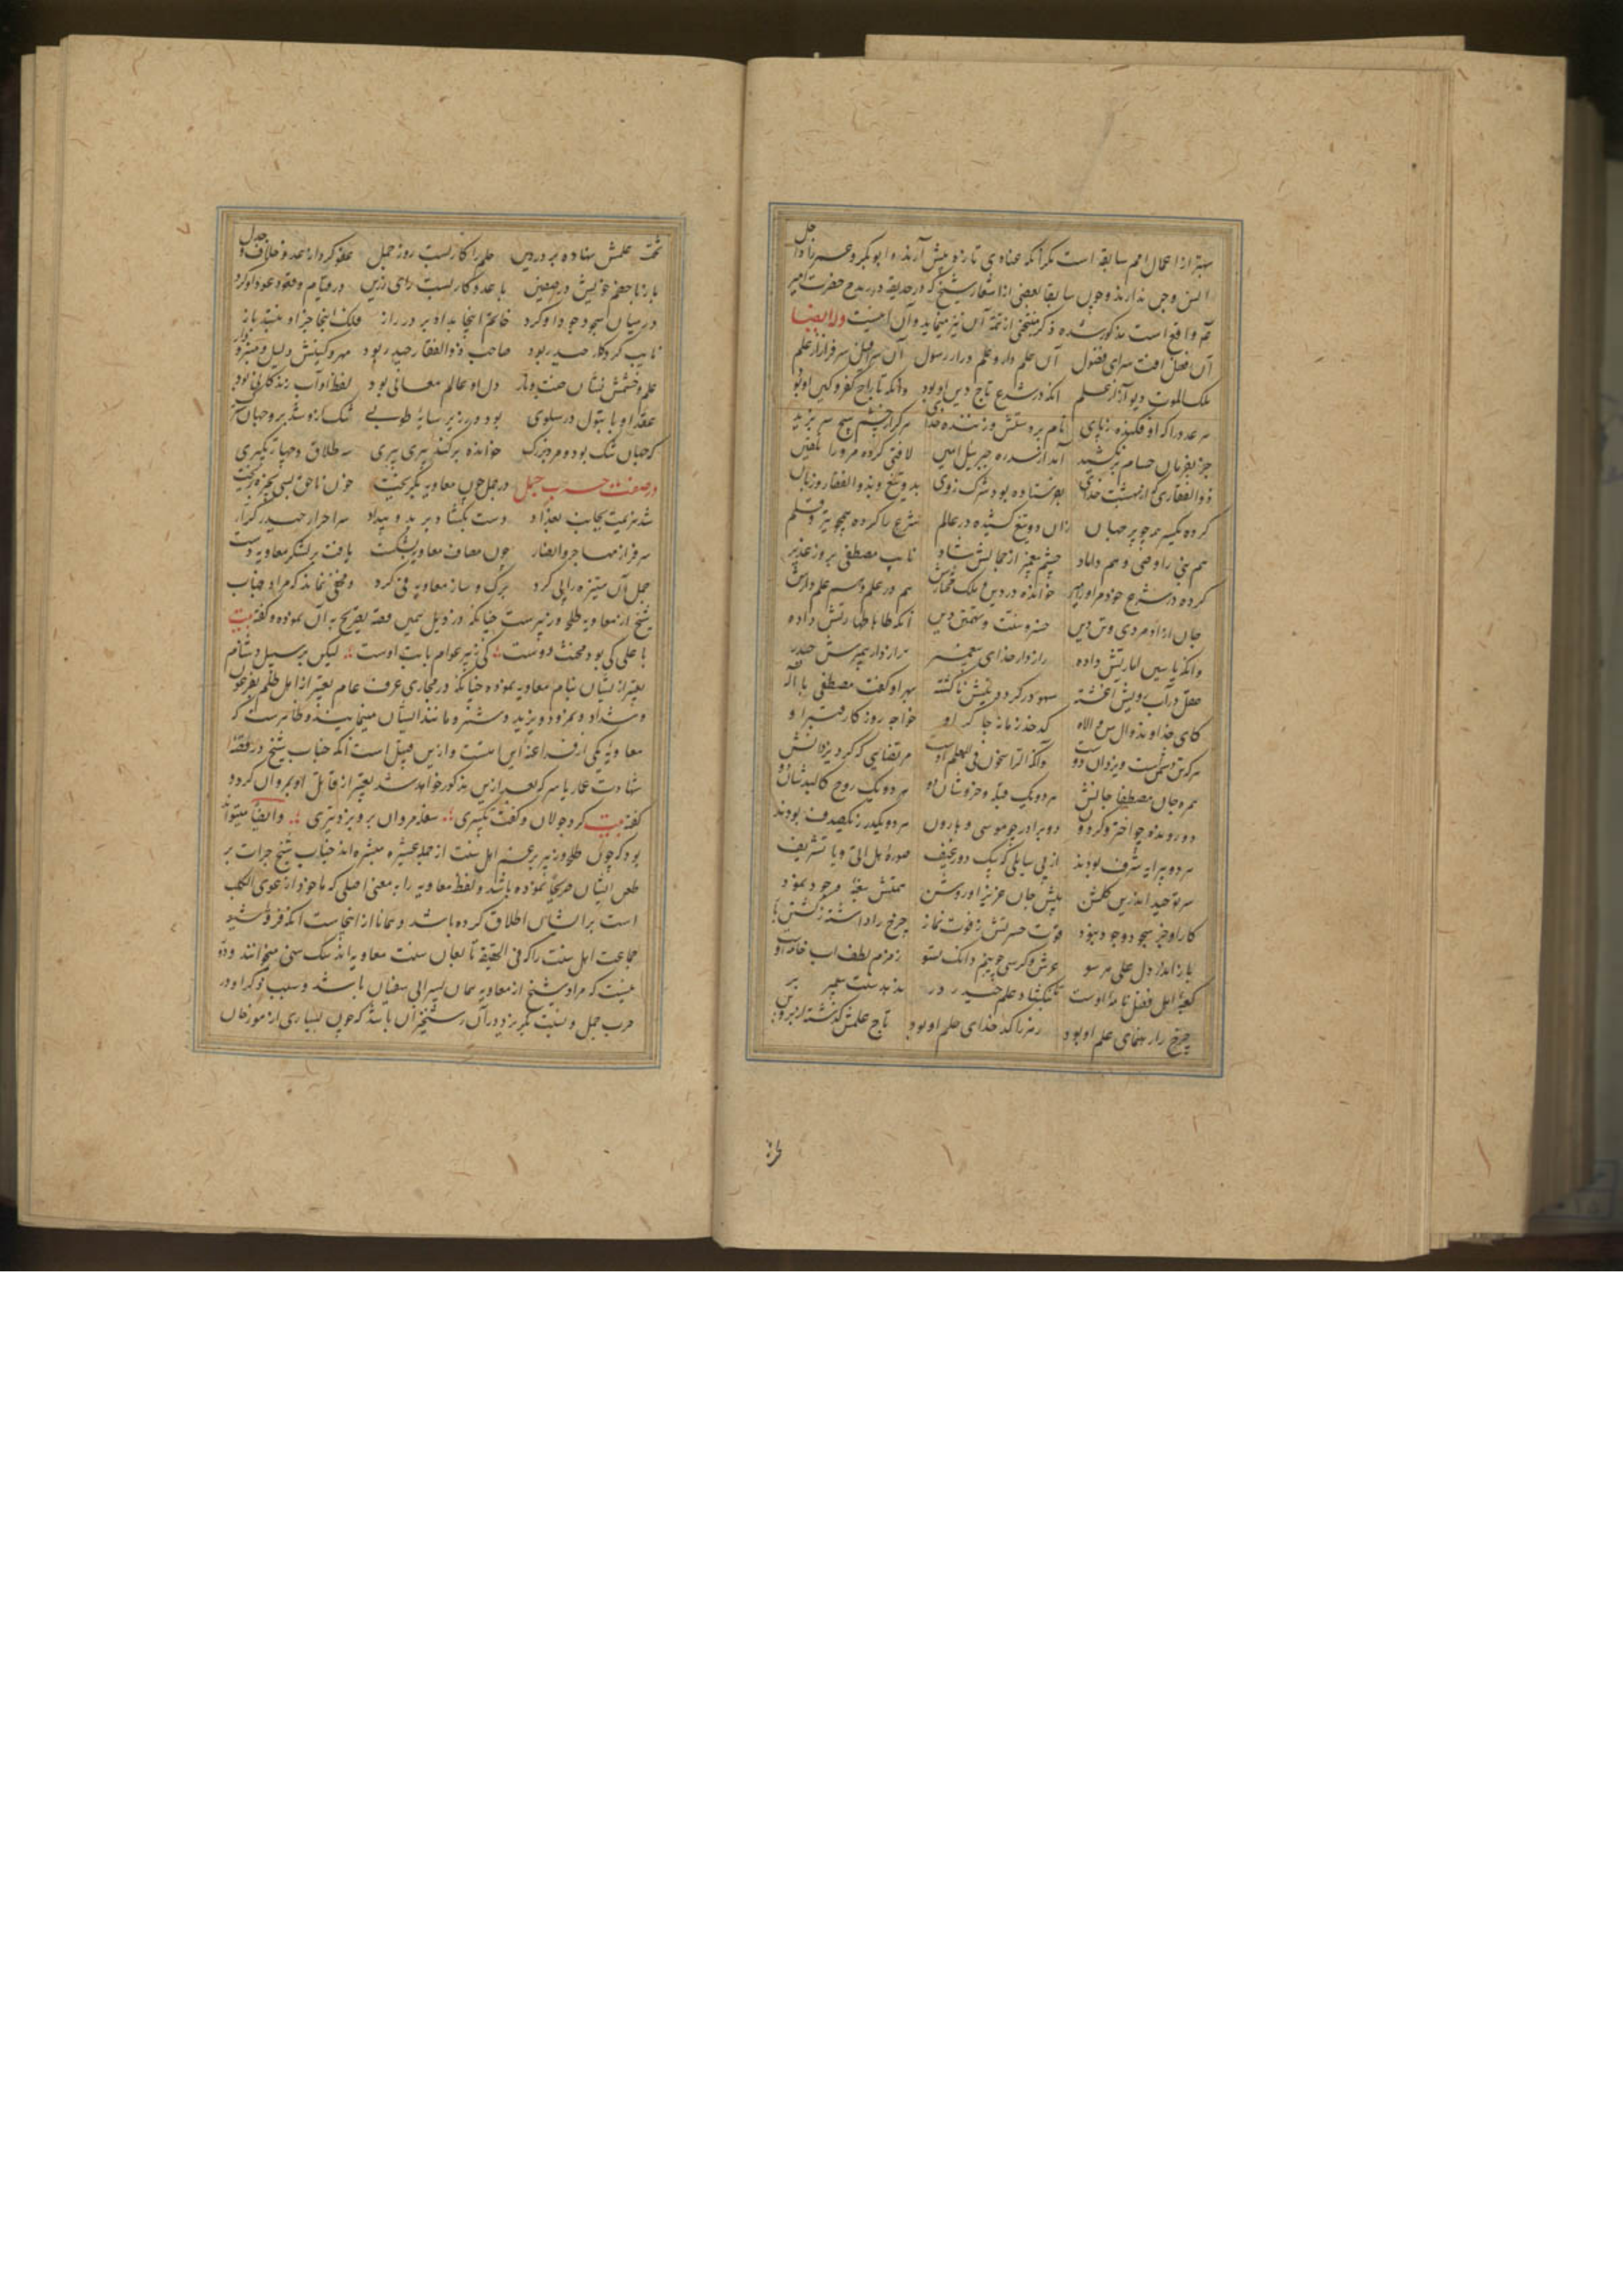 بهتر از اعمال امم سابقه است مگر آنکه عنادی تازه پیش آرند و ابوبکر و عمر را داخل
این وجوه ندارند و چون سابقا بعضی از اشعار شیخ که در حدیقه در مدح حضرت امیر
واقع است مذکور شده ذکر منتخبی از تتمه آن نیز مینماید و آن اینست وله ایضا
آن فضل آفت سرای فضول آن علم دار و علم دار رسول آن سرافیل سرفراز از علم
ملک الموت دیو آز از علم آنکه در شرع تاج دین او بود وآنکه تاراج کفر و کین او بود
هر عدو را که او فکنده ز پای نام بر دستش و زننده خدای
جز بفرمان حسام برنکشید آمد از سدره جبرئیل امین لافتی کرده مرورا تلقین
ذوالفقاری که از بهشت خدای بفرستاده بود شرک زدای بدو تیغ و بذوالفقار و زبان
کرده یکسر همچو پر جهان زان دو تیغ کشیده در عالم شرع را کرده همچو تیر و قلم
هم نبی را وصی و هم داماد چشم پیغمبر از جمالش شاد نایب مصطفی بروز غدیر
کرده در شرع خود مر او را میر خوانده در دین و ملک مختارش هم در علم و هم علم دارش
جان از او مردی و تن دین خسرو سنت و تهمتن دین آنکه طاها طهارتش داده
وآنکه یاسین امارتش داده رازدار خدای پیغمبر رازدار پیمبرش حیدر
عقل در آب رویش آغشته سهو در گرد و پیش ناگشته بهر او گفت مصطفی باله
کای خداوند وال من والاه کدخدای زمانه چاکر او خواجه روزگار قنبر او
هرکه تن دشمنست و یزدان دوست وآنکه الراسخون فی العلم اوست مرتضایی که کرد یزدانش
همره جان مصطفی جانش هر دو یک قبله و خردشان دو هر دو یک روح کالبدشان دو
دو رونده چو اختر گردون دو برادر چو موسی و هارون هر دو یکدر ز یک صدف بودند
هر دو پیرایه شرف بودند از پی سایلی که یک دو رغیف سوره هل اتی ورا تشریف
سر توحید اندرین گلشن پیش جان عزیز او روشن
کار او جز سجود و جود نبود فوت حسرتش ز فوت نماز چرخ را داشته ز گشتن باز
باز اندر دل علی هر سو عرش و کرسی زمزم لطف آب خامه او
کعبه اهل فضل نامه اوست تا بنگشاد علم حیدر در ندهد سنت پیمبر بر
چرخ را رهنمای علم او بود کدخدای حلم او بود تاج علمش گذشته از پروین
تخت
تخت حلمش نهاده بر در دین حلم را کار بست روز جمل عفو کرد از عدو خلاف و جدل
باز با خصم خویش در صفین با عدو کار بست رای رزین در قیام و قعود عود او کرد
در میان سجود جود او کرد خاتم اینجا بداده بر در راز فلک اینجا
نایب کردگار حیدر بود صاحب ذوالفقار حیدر بود مهر و کینش دلیل و منبر و دار
حلم و خشمش نشان جنت و نار دل او عالم معانی بود لفظ او آب زندگانی بود
عقد او با بتول در سلوی بوده در زیر سایه طوبی تنگ ازو شد برو جهان سترگ
که جهان تنگ بود و مرد بزرگ خوانده بر کنده پیری پیری سه طلاق و چهار تکبیری
در صفت حرب جمل در جمل چون معاویه بگریخت خون ناحق بسی بخیره بریخت
شد هزیمت بجانب بغداد دست بگشاد بر بد و بیداد سر احرار حیدر کرار
سرفراز مهاجر و انصار چون مصاف معاویه بشکست یافت بر لشکر معاویه دست
جمل آن ستیزه را پی کرد برگ و ساز معاویه فی کرد و مخفی نماند که مراد جناب
شیخ از معاویه طلحه و زبیر است چنانکه در ذیل همین قصه تصریح به آن نموده و گفته بیت
با علی کی بود مخنث دوست ؛ کی زبیر عوام بابت اوست ؛ لیکن بر سبیل دشنام
تعبیر از ایشان بنام معاویه نموده چنانکه در مجاری عرف عام تعبیر از اهل ظلم بفرعون
و شداد و نمرود و یزید و شمر و مانند ایشان مینمایند و ظاهر است که
معاویه یکی از فراعنه این امتست و ازین قبیل است آنکه جناب شیخ در قصه
شهادت عمار یاسر که بعد ازین مذکور خواهد شد تعبیر از قاتل او بمروان کرده و
گفته بیت کرد جولان و گفت تکبیری ؛ سفله مروان برو بزد تیری ؛ و ایضا میتواند
بود که چون طلحه و زبیر بزعم اهل سنت از جمله عشره مبشره اند جناب شیخ جرات بر
طعن ایشان صریحا ننموده باشد و لفظ معاویه را به معنی اصلی که ماخوذ از عوی الکلب
است بر ایشان اطلاق کرده باشد و همانا از اینجاست آنکه فرقه شیعه
جماعت اهل سنت را که فی الحقیقه تابعان سنت معاویه اند سگ سنی میخوانند و دور
نیست که مراد شیخ از معاویه همان پسر ابی سفیان باشد و سبب ذکر او در
حرب جمل و نسبت گریز در آن رستخیز آن باشد که چون بسیاری از مورخان